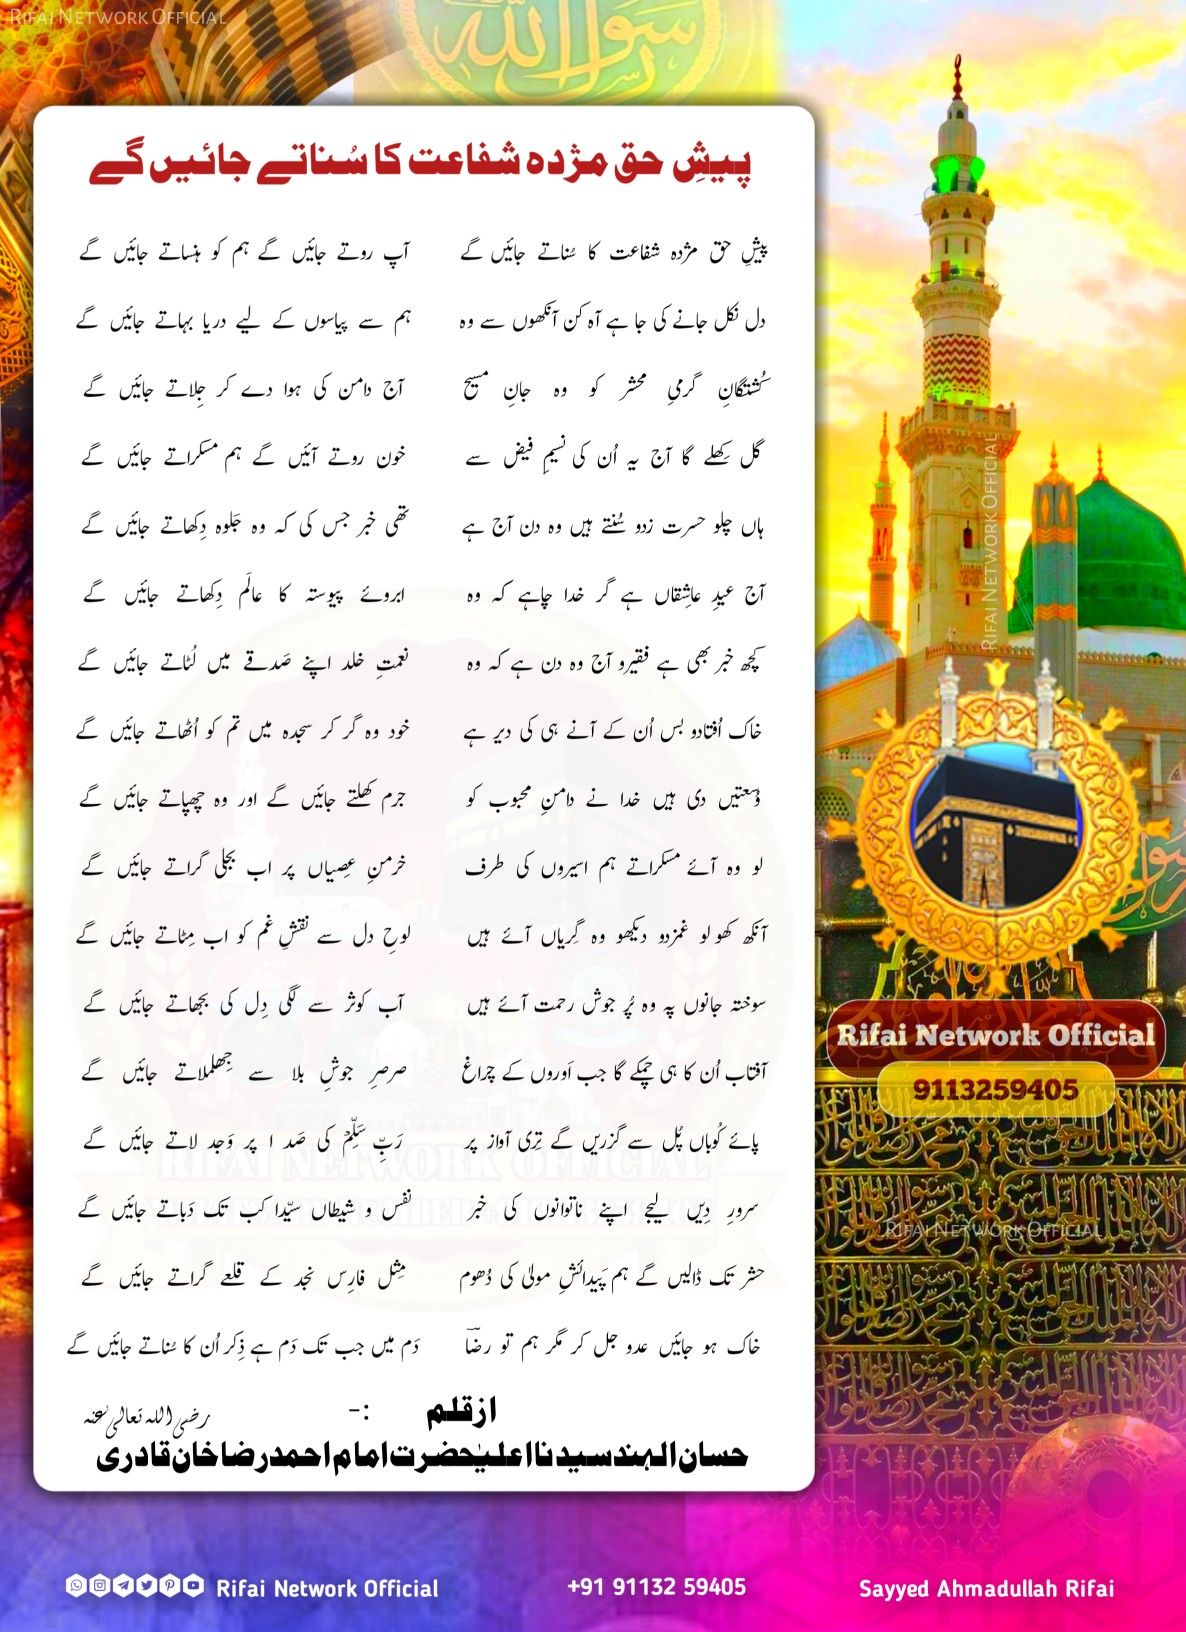 RIFAI NETWORK OFFICIAL
رسول الله
پیشِ حق مژدہ شفاعت کا سُناتے جائیں گے
پیشِ حق مژدہ شفاعت کا سُناتے جائیں گے آپ روتے جائیں گے ہم کو ہنساتے جائیں گے
دل نکل جانے کی جا ہے آہ کن آنکھوں سے وہ ہم سے پیاسوں کے لیے دریا بہاتے جائیں گے
کُشتگانِ گرمیِ محشر کو وہ جانِ مسیح آج دامن کی ہوا دے کر جِلاتے جائیں گے
گل کِھلے گا آج یہ اُن کی نسیمِ فیض سے خون روتے آئیں گے ہم مسکراتے جائیں گے
ہاں چلو حسرت زدو سُنتے ہیں وہ دن آج ہے تھی خبر جس کی کہ وہ جَلوہ دِکھاتے جائیں گے
آج عیدِ عاشِقاں ہے گر خدا چاہے کہ وہ ابروئے پیوستہ کا عالَم دِکھاتے جائیں گے
کچھ خبر بھی ہے فقیرو آج وہ دن ہے کہ وہ نعمتِ خلد اپنے صَدقے میں لُٹاتے جائیں گے
خاک اُفتادو بس اُن کے آنے ہی کی دیر ہے خود وہ گر کر سجدہ میں تم کو اُٹھاتے جائیں گے
وُسعتیں دی ہیں خدا نے دامنِ محبوب کو جرم کھلتے جائیں گے اور وہ چھپاتے جائیں گے
لو وہ آئے مسکراتے ہم اسیروں کی طرف خرمنِ عِصیاں پر اب بجلی گراتے جائیں گے
آنکھ کھولو غمزدو دیکھو وہ گِریاں آئے ہیں لوحِ دل سے نقشِ غم کو اب مِٹاتے جائیں گے
سوختہ جانوں پہ وہ پُر جوش رحمت آئے ہیں آب کوثر سے لگی دِل کی بجھاتے جائیں گے
آفتاب اُن کا ہی چمکے گا جب اَوروں کے چراغ صرصرِ جوشِ بلا سے جِھلملاتے جائیں گے
پائے کُوباں پُل سے گزریں گے تِری آواز پر رَبِّ سَلِّمْ کی صَد ا پر وَجد لاتے جائیں گے
سرورِ دِیں لیجے اپنے ناتوانوں کی خبر نفس و شیطاں سیّدا کب تک دَباتے جائیں گے
حشر تک ڈالیں گے ہم پَیدائشِ مولیٰ کی دُھوم مِثل فارِس نجد کے قلعے گراتے جائیں گے
خاک ہو جائیں عدو جل کر مگر ہم تو رضؔا دَم میں جب تک دَم ہے ذِکر اُن کا سُناتے جائیں گے
ازقلم :-
رضی اللہ تعالی عنہ
حسان الہند سیدنا اعلیٰحضرت امام احمد رضا خان قادری
RIFAI NETWORK OFFICIAL
Rifai Network Official
9113259405
RIFAI NETWORK OFFICIAL
RIFAI NETWORK OFFICIAL
Rifai Network Official
+91 91132 59405
Sayyed Ahmadullah Rifai